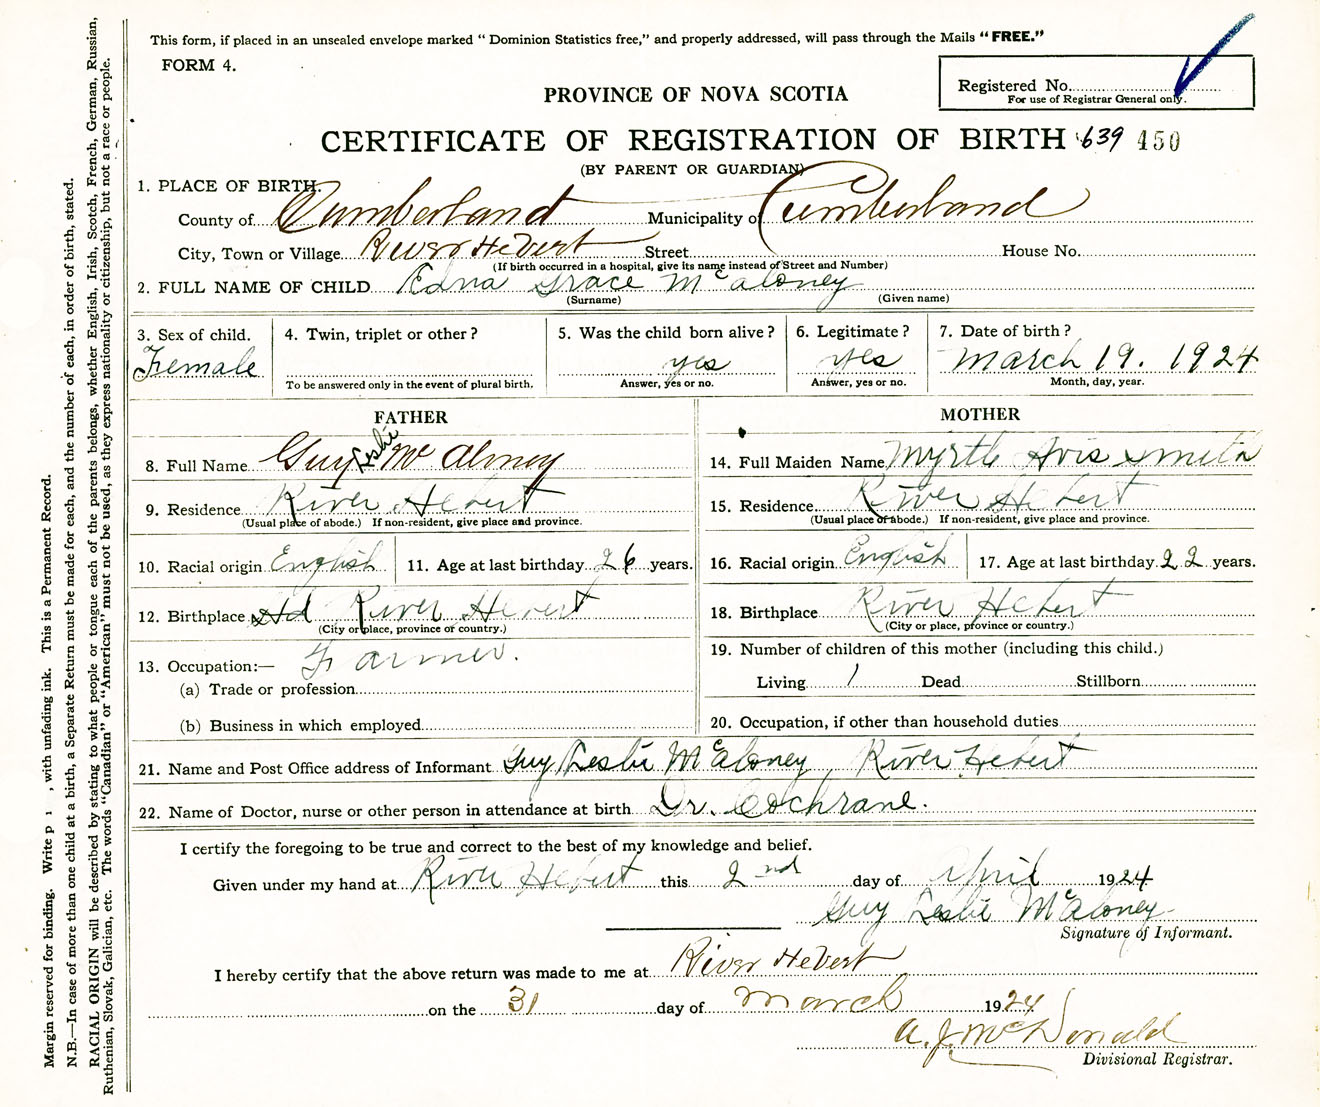 This form, if placed in an unsealed envelope marked " Dominion Statistics free," and properly addressed, will pass through the Mails "FREE."
FORM 4.
Registered No.
For use of Registrar General only.
PROVINCE OF NOVA SCOTIA
CERTIFICATE OF REGISTRATION OF BIRTH 639 450
(BY PARENT OR GUARDIAN)
1. PLACE OF BIRTH.
County of Cumberland Municipality of Cumberland
City, Town or Village River Hebert Street House No.
(If birth occurred in a hospital, give its name instead of Street and Number)
2. FULL NAME OF CHILD Edna Grace McAloney
(Surname) (Given name)
3. Sex of child. Female
4. Twin, triplet or other ?
To be answered only in the event of plural birth.
5. Was the child born alive ? yes
Answer, yes or no.
6. Legitimate ? yes
Answer, yes or no.
7. Date of birth ? March 19. 1924
Month, day, year.
FATHER
8. Full Name Guy Leslie McAloney
9. Residence River Hebert
(Usual place of abode.) If non-resident, give place and province.
10. Racial origin English 11. Age at last birthday 26 years.
12. Birthplace River Hebert
(City or place, province or country.)
13. Occupation:— Farmer.
(a) Trade or profession
(b) Business in which employed
MOTHER
14. Full Maiden Name Myrtle Avis Smith
15. Residence River Hebert
(Usual place of abode.) If non-resident, give place and province.
16. Racial origin English 17. Age at last birthday 22 years.
18. Birthplace River Hebert
(City or place, province or country.)
19. Number of children of this mother (including this child.)
Living 1 Dead Stillborn
20. Occupation, if other than household duties
21. Name and Post Office address of Informant Guy Leslie McAloney River Hebert
22. Name of Doctor, nurse or other person in attendance at birth Dr. Cochrane.
I certify the foregoing to be true and correct to the best of my knowledge and belief.
Given under my hand at River Hebert this 2nd day of April 1924
Guy Leslie McAloney
Signature of Informant.
I hereby certify that the above return was made to me at River Hebert
on the 31 day of March 1924
A. J. McDonald
Divisional Registrar.
Margin reserved for binding. Write p , with unfading ink. This is a Permanent Record.
N.B.—In case of more than one child at a birth, a Separate Return must be made for each, and the number of each, in order of birth, stated.
RACIAL ORIGIN will be described by stating to what people or tongue each of the parents belongs, whether English, Irish, Scotch, French, German, Russian,
Ruthenian, Slovak, Galician, etc. The words "Canadian" or "American" must not be used, as they express nationality or citizenship, but not a race or people.